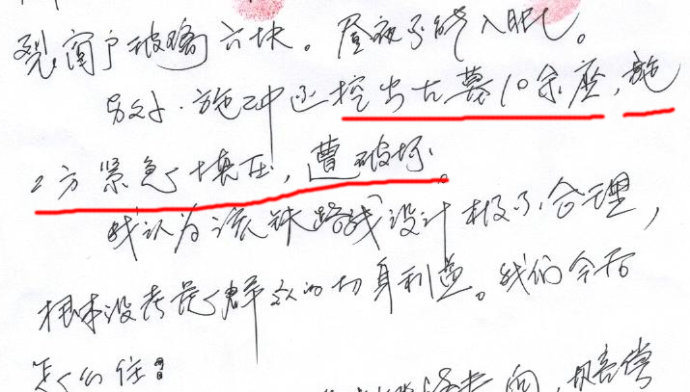 裂，窗户玻璃六块。昼夜不能入眠。
另外，施工中还挖出古墓10余座，施
工方紧急填压，遭破坏。
我认为该铁路线设计极不合理，
根本没考虑群众的切身利益。我们今后
怎么住？
赔偿